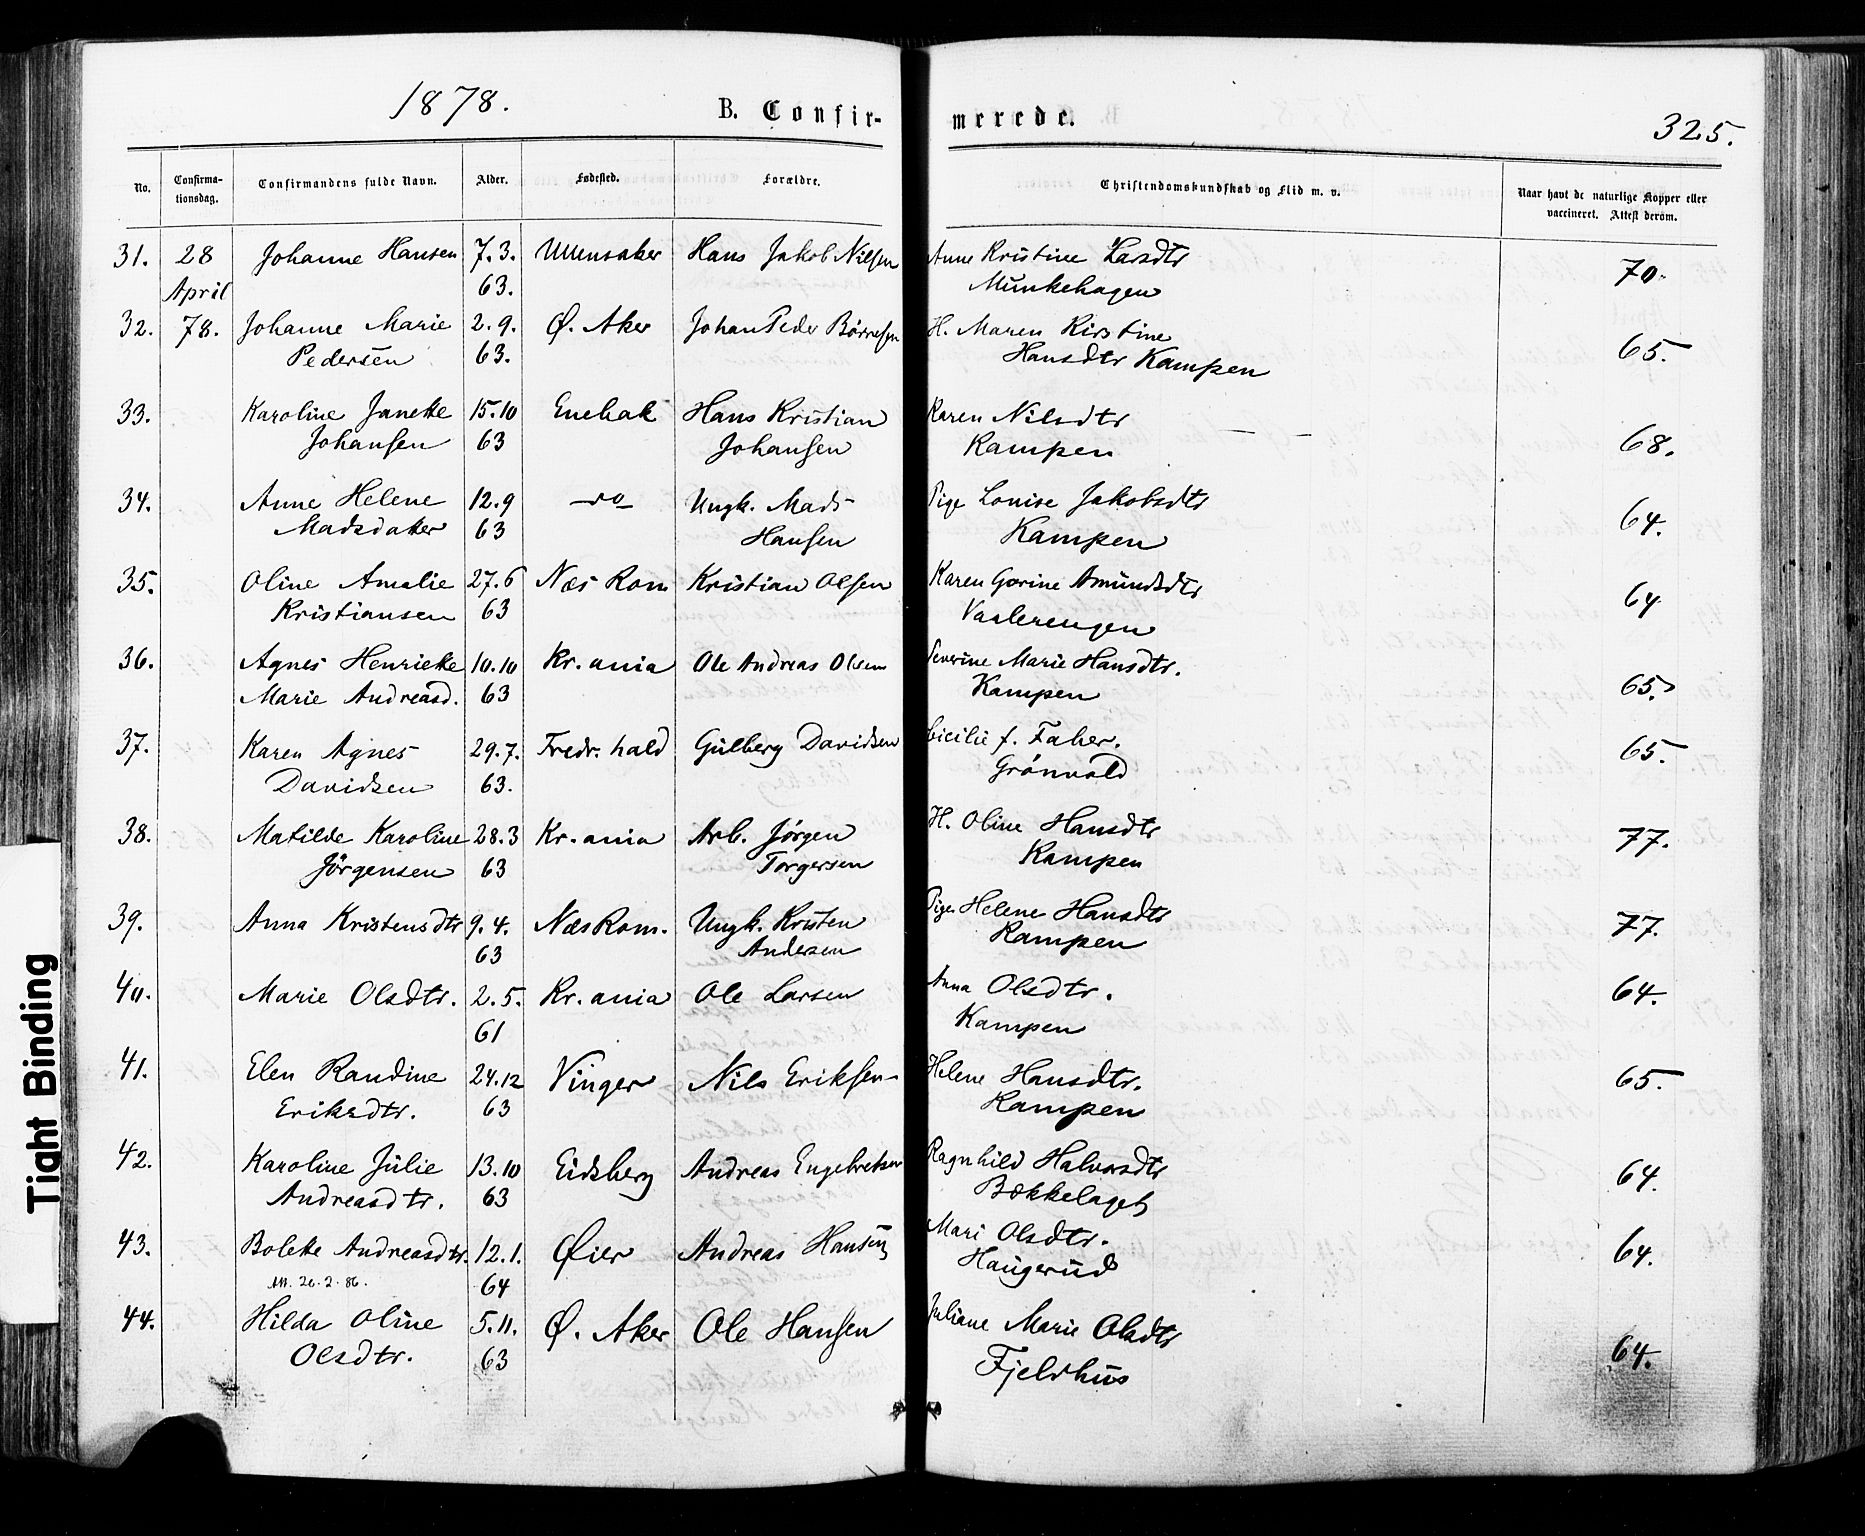 1878.
B. Confir-
merede.
325.
No.
Confirma-
tionsdag.
Confirmandens fulde Navn.
Alder.
Fødested.
Forældre.
Christendomskundskab og Flid m. v.
Naar havt de naturlige Kopper eller
vaccineret. Attest derom.
31. 28 Johanne Hansen 7.3. Ullensaker Hans Jakob Nilsen Anne Kristine Larsdtr 70.
April 63. Munkehagen
32. 78. Johanne Marie 2.9. Ø. Aker Johan Peder Børresen H. Maren Kirstine 65.
Pedersen 63. Hansdtr Kampen
33. Karoline Janette 15.10 Enebak Hans Kristian Karen Nilsdtr
Johansen 63 Johansen Kampen 68.
34. Anne Helene 12.9 —do— Ungk. Mads Pige Louise Jakobsdtr 64.
63 Hansen Kampen
35. Oline Amalie 27.6 Næs Rom Kristian Olsen Karen Gorine Amundsdtr 64
Kristiansen 63 Vaalerengen
36. Agnes Henriette 10.10 Kr.ania Ole Andreas Olsen Severine Marie Hansdtr. 65.
Marie Andreasd. 63 Kampen
37. Karen Agnes 29.7. Fredr.hald Gulberg Davidsen Cicilie f. Faher. 65.
Davidsen 63. Grønvold
38. Matilde Karoline 28.3 Kr.ania Arb. Jørgen H. Oline Hansdtr 77.
Jørgensen 63 Torgersen Kampen
39. Anna Kristensdtr 9.4. Næs Rom. Ungk. Kristen Pige Helene Hansdtr 77.
63 Andersen Kampen
40. Marie Olsdtr. 2.5. Kr.ania Ole Larsen Anna Olsdtr. 64.
61 Kampen
41. Elen Randine 24.12 Vinger Nils Eriksen Helene Hansdtr. 65.
Eriksdtr. 63 Kampen
42. Karoline Julie 13.10 Eidsberg Andreas Engebretsen Ragnhild Halvorsdtr 64.
Andreasdtr. 63 Bækkelaget
43. Bolette Andreasdtr. 12.1. Øier Andreas Hansen Mari Olsdtr. 64.
Att. 26.2.86. 64 Haugerud
44. Hilda Oline 5.11. Ø. Aker Ole Hansen Juliane Marie Olsdtr 64.
Olsdtr. 63 Fjeldhus
Tight Binding